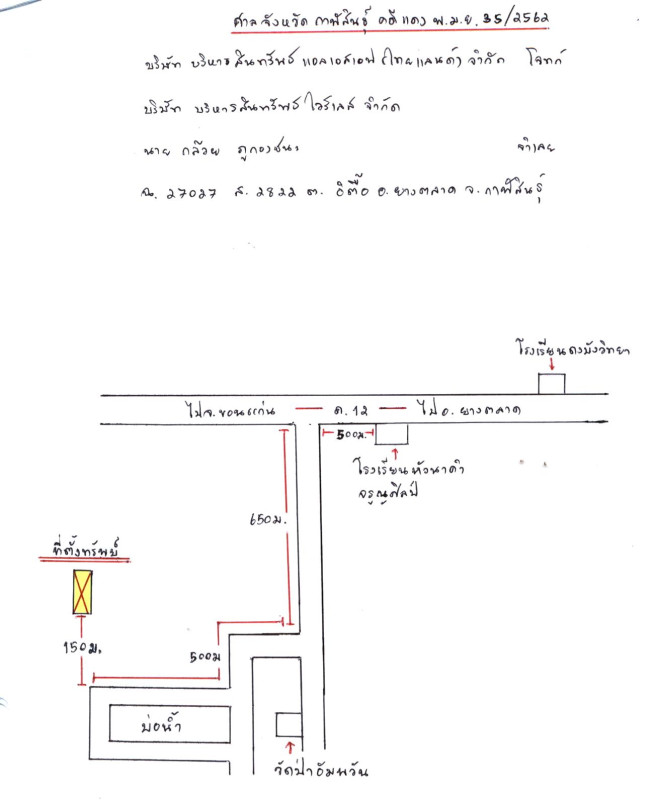 ศาลจังหวัดกาฬสินธุ์ คดีแดง พ.ม.ย. 35/2562
บริษัท บริหารสินทรัพย์ แอลเอสเอฟ (ไทยแลนด์) จำกัด โจทก์
บริษัท บริหารสินทรัพย์ ไวร์เลส จำกัด
นาย กล้วย ภูกองชนะ จำเลย
ฉ. 27027 ล. 2822 ต. อิตื้อ อ. ยางตลาด จ. กาฬสินธุ์
โรงเรียนดงบังวิทยา
ไปจ.ขอนแก่น — ถ.12 — ไปอ.ยางตลาด
500ม.
โรงเรียนหัวนาคำ
จรูญศิลป์
650ม.
ที่ตั้งทรัพย์
150ม.
500ม
บ่อน้ำ
วัดป่าอัมพวัน